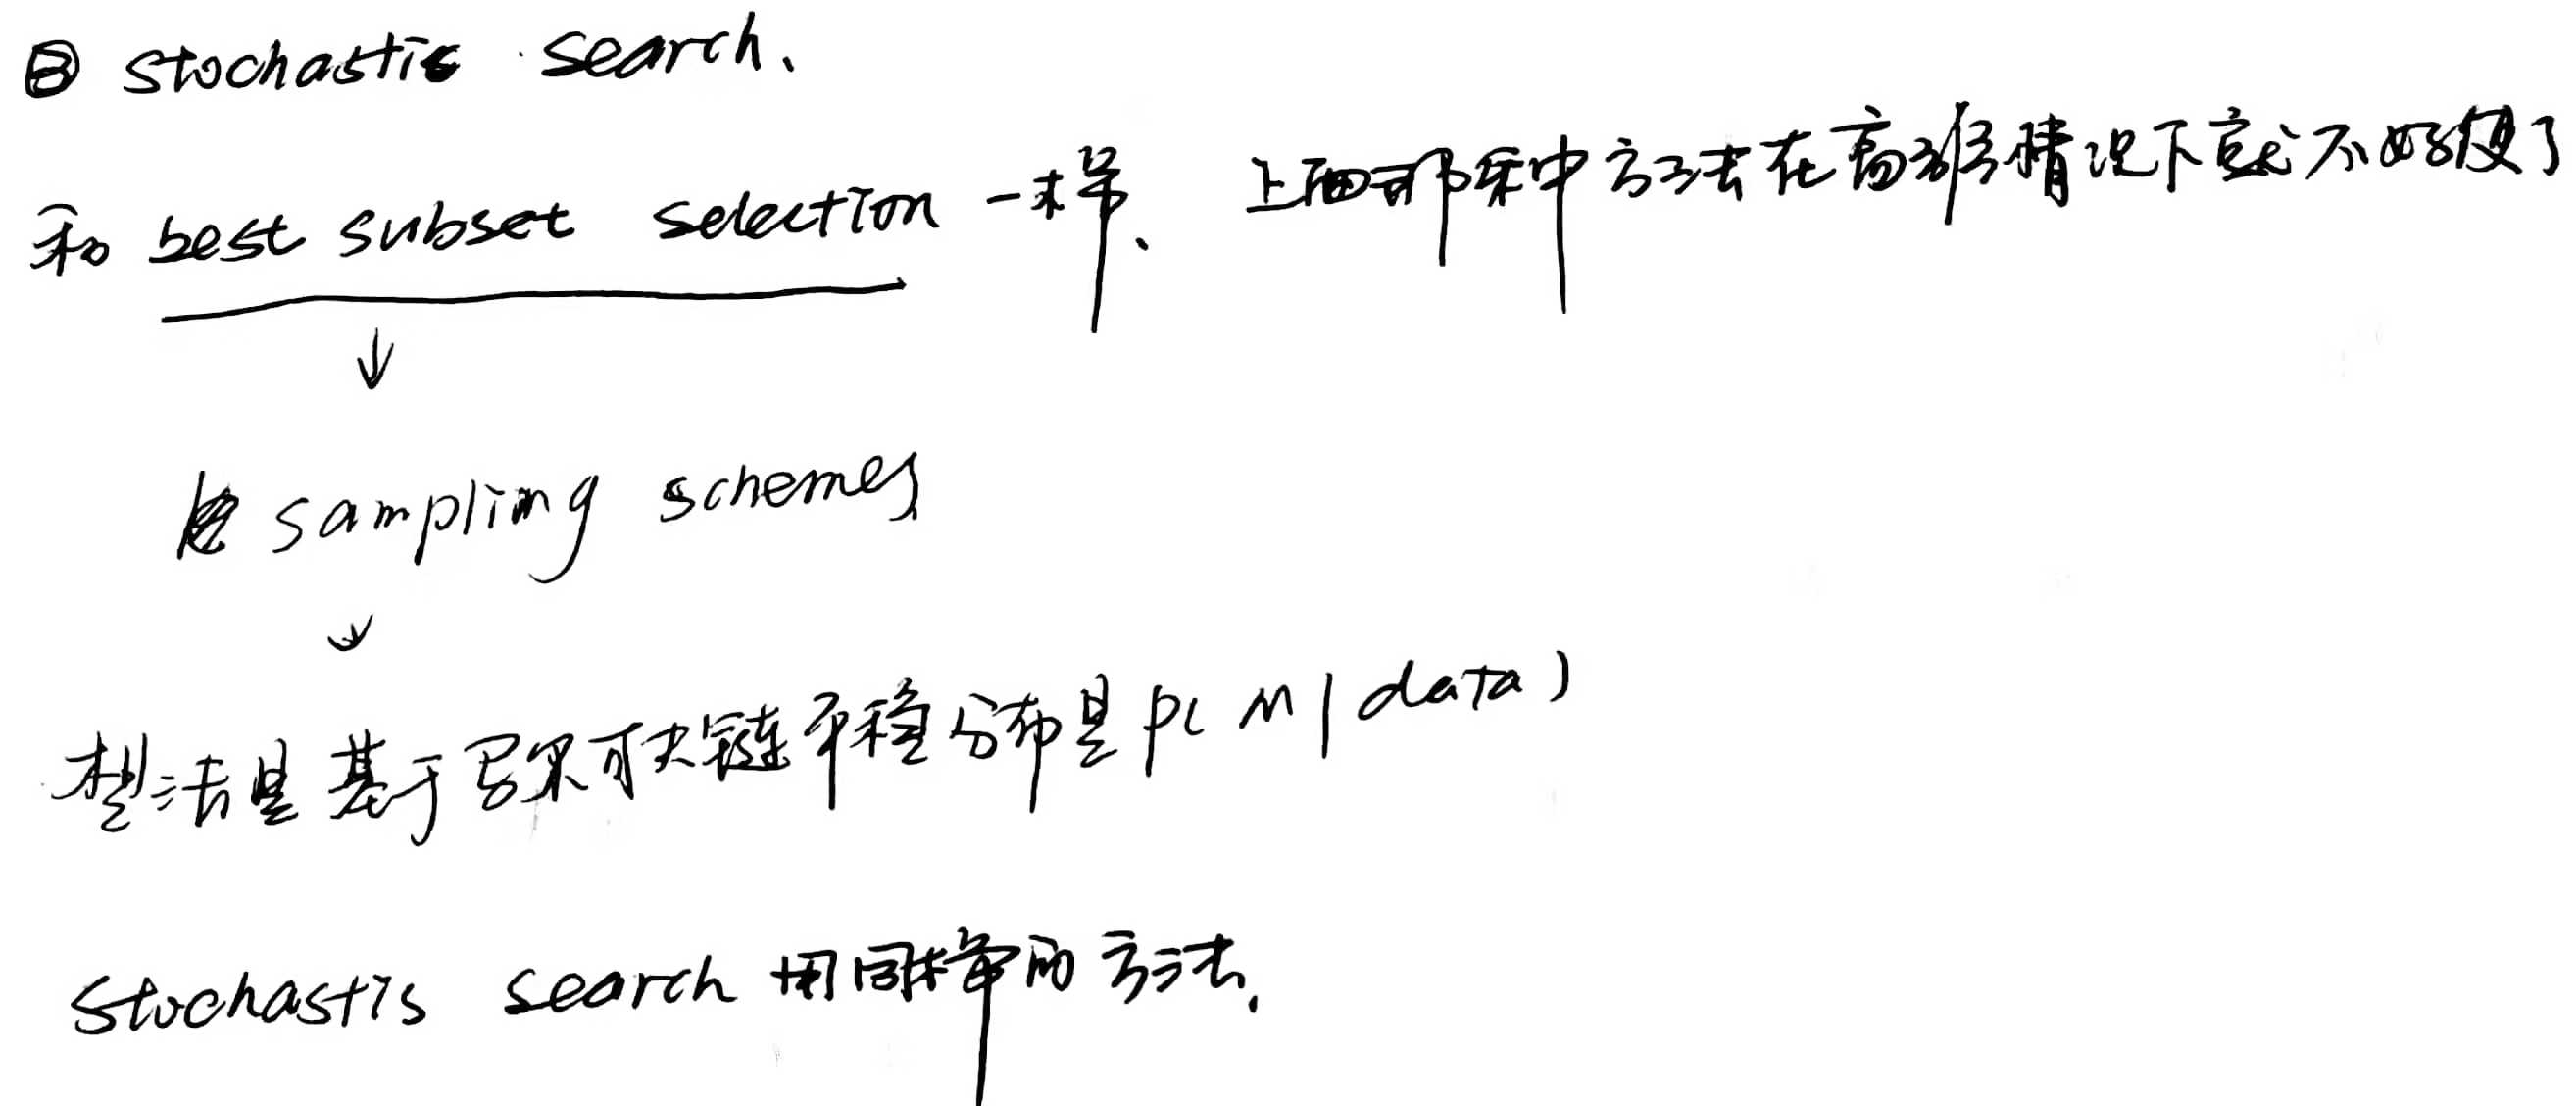 ③ stochastic search、
和 best subset selection 一样、 上面那种方法在高维情况下就不好使了
↓
sampling schemes
↓
想法是基于马尔可夫链平稳分布是 p( M | data )
stochastis search 用同样的方法.